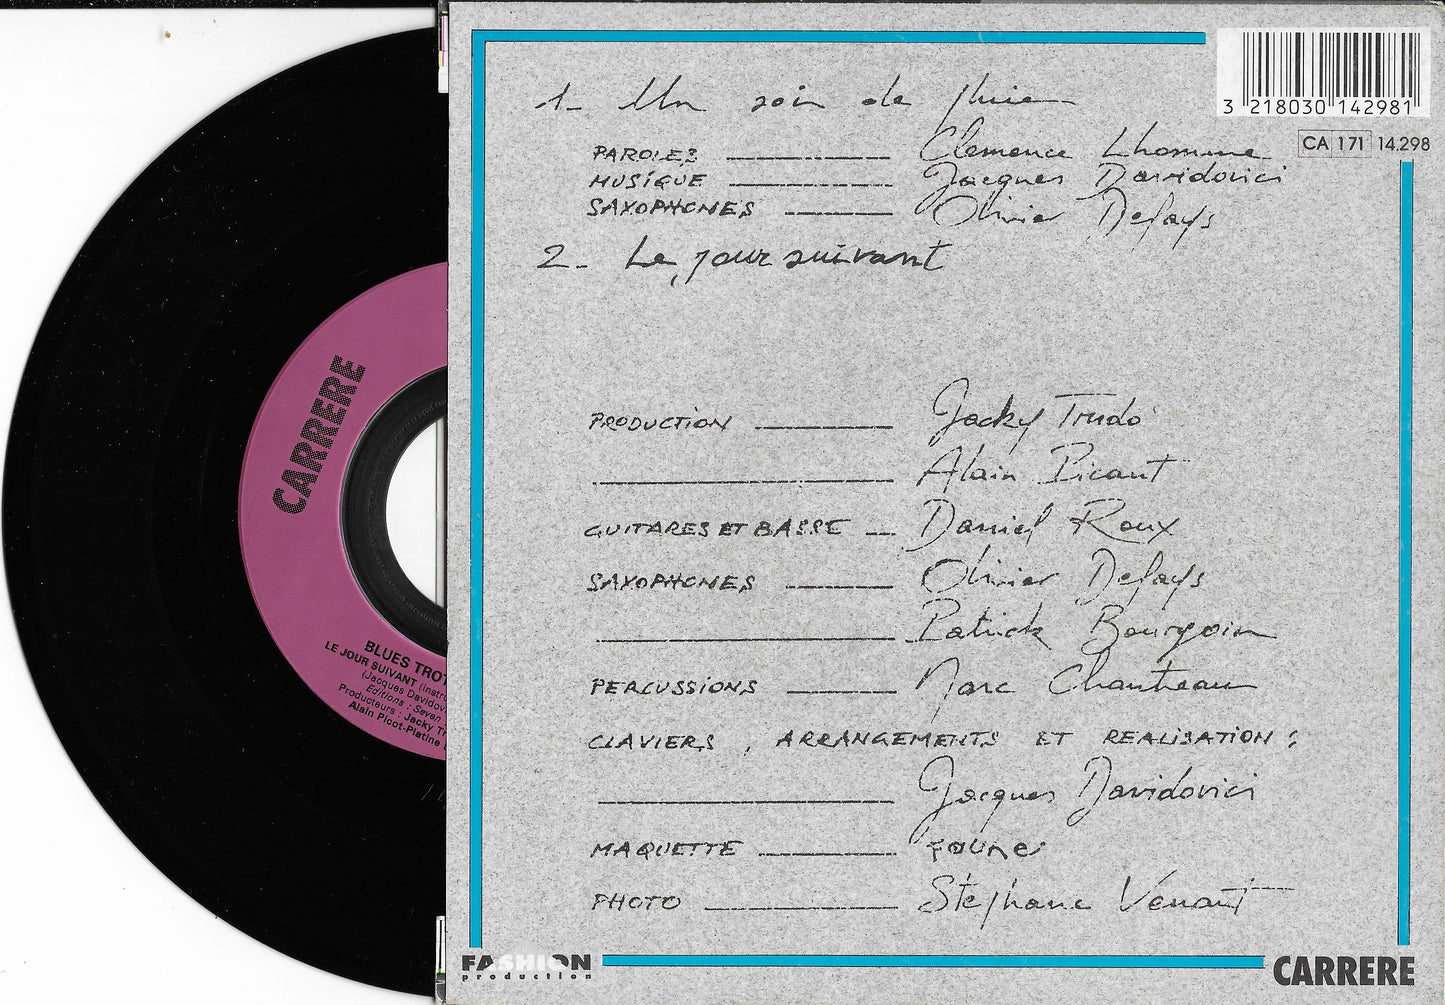 1_ Un soir de pluie
PAROLES Clemence Lhomme
MUSIQUE Jacques Davidovici
SAXOPHONES Olivier Defays
2_ Le jour suivant
PRODUCTION Jacky Trudo
Alain Picaut
GUITARES ET BASSE Daniel Roux
SAXOPHONES Olivier Defays
Patrick Bourgoin
PERCUSSIONS Marc Chantreau
CLAVIERS, ARRANGEMENTS ET REALISATION:
Jacques Davidovici
MAQUETTE
PHOTO Stéphane Venant
3 218030 142981
CA 171 14.298
FASHION
production
CARRERE
CARRERE
BLUES TROT
LE JOUR SUIVANT (Instru
(Jacques Davidov
Editions : Seven
Producteurs : Jacky Tr
Alain Picot-Platine